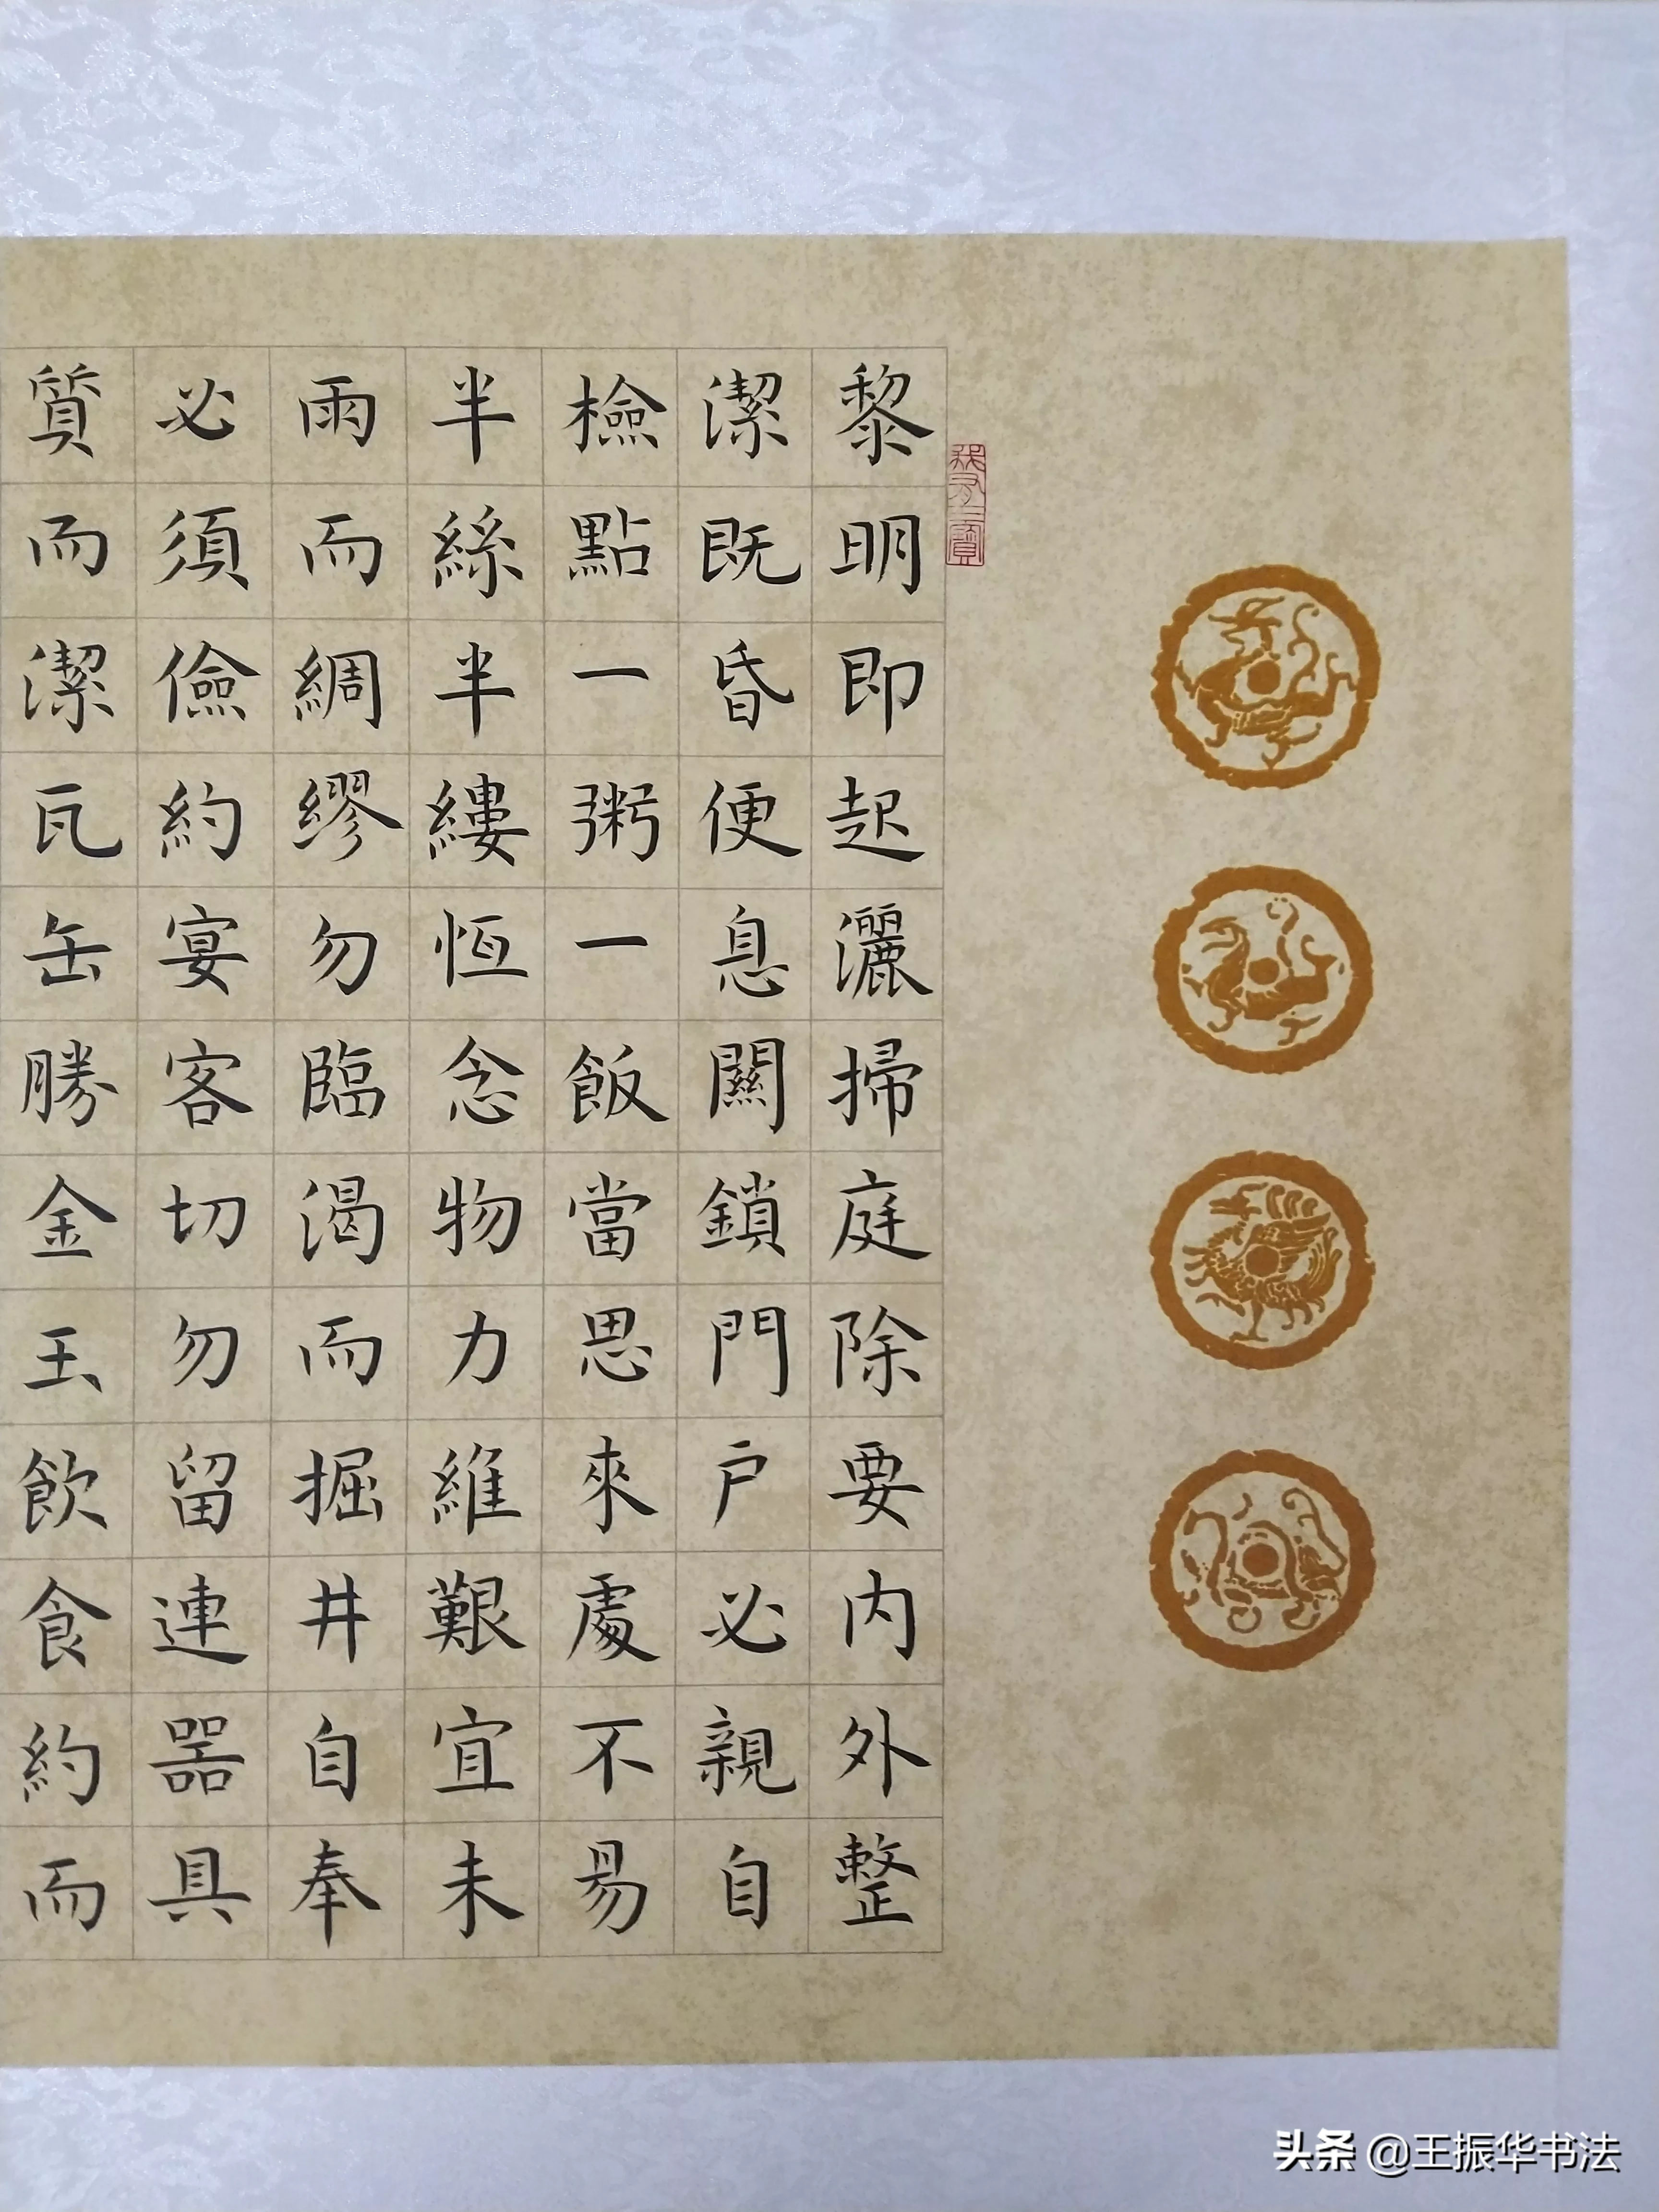 黎明即起灑掃庭除要内外整
潔既昏便息關鎖門户必親自
檢點一粥一飯當思來處不易
半絲半縷恒念物力維艱宜未
雨而綢繆勿臨渴而掘井自奉
必須儉約宴客切勿留連器具
質而潔瓦缶勝金玉飲食約而
头条 @王振华书法